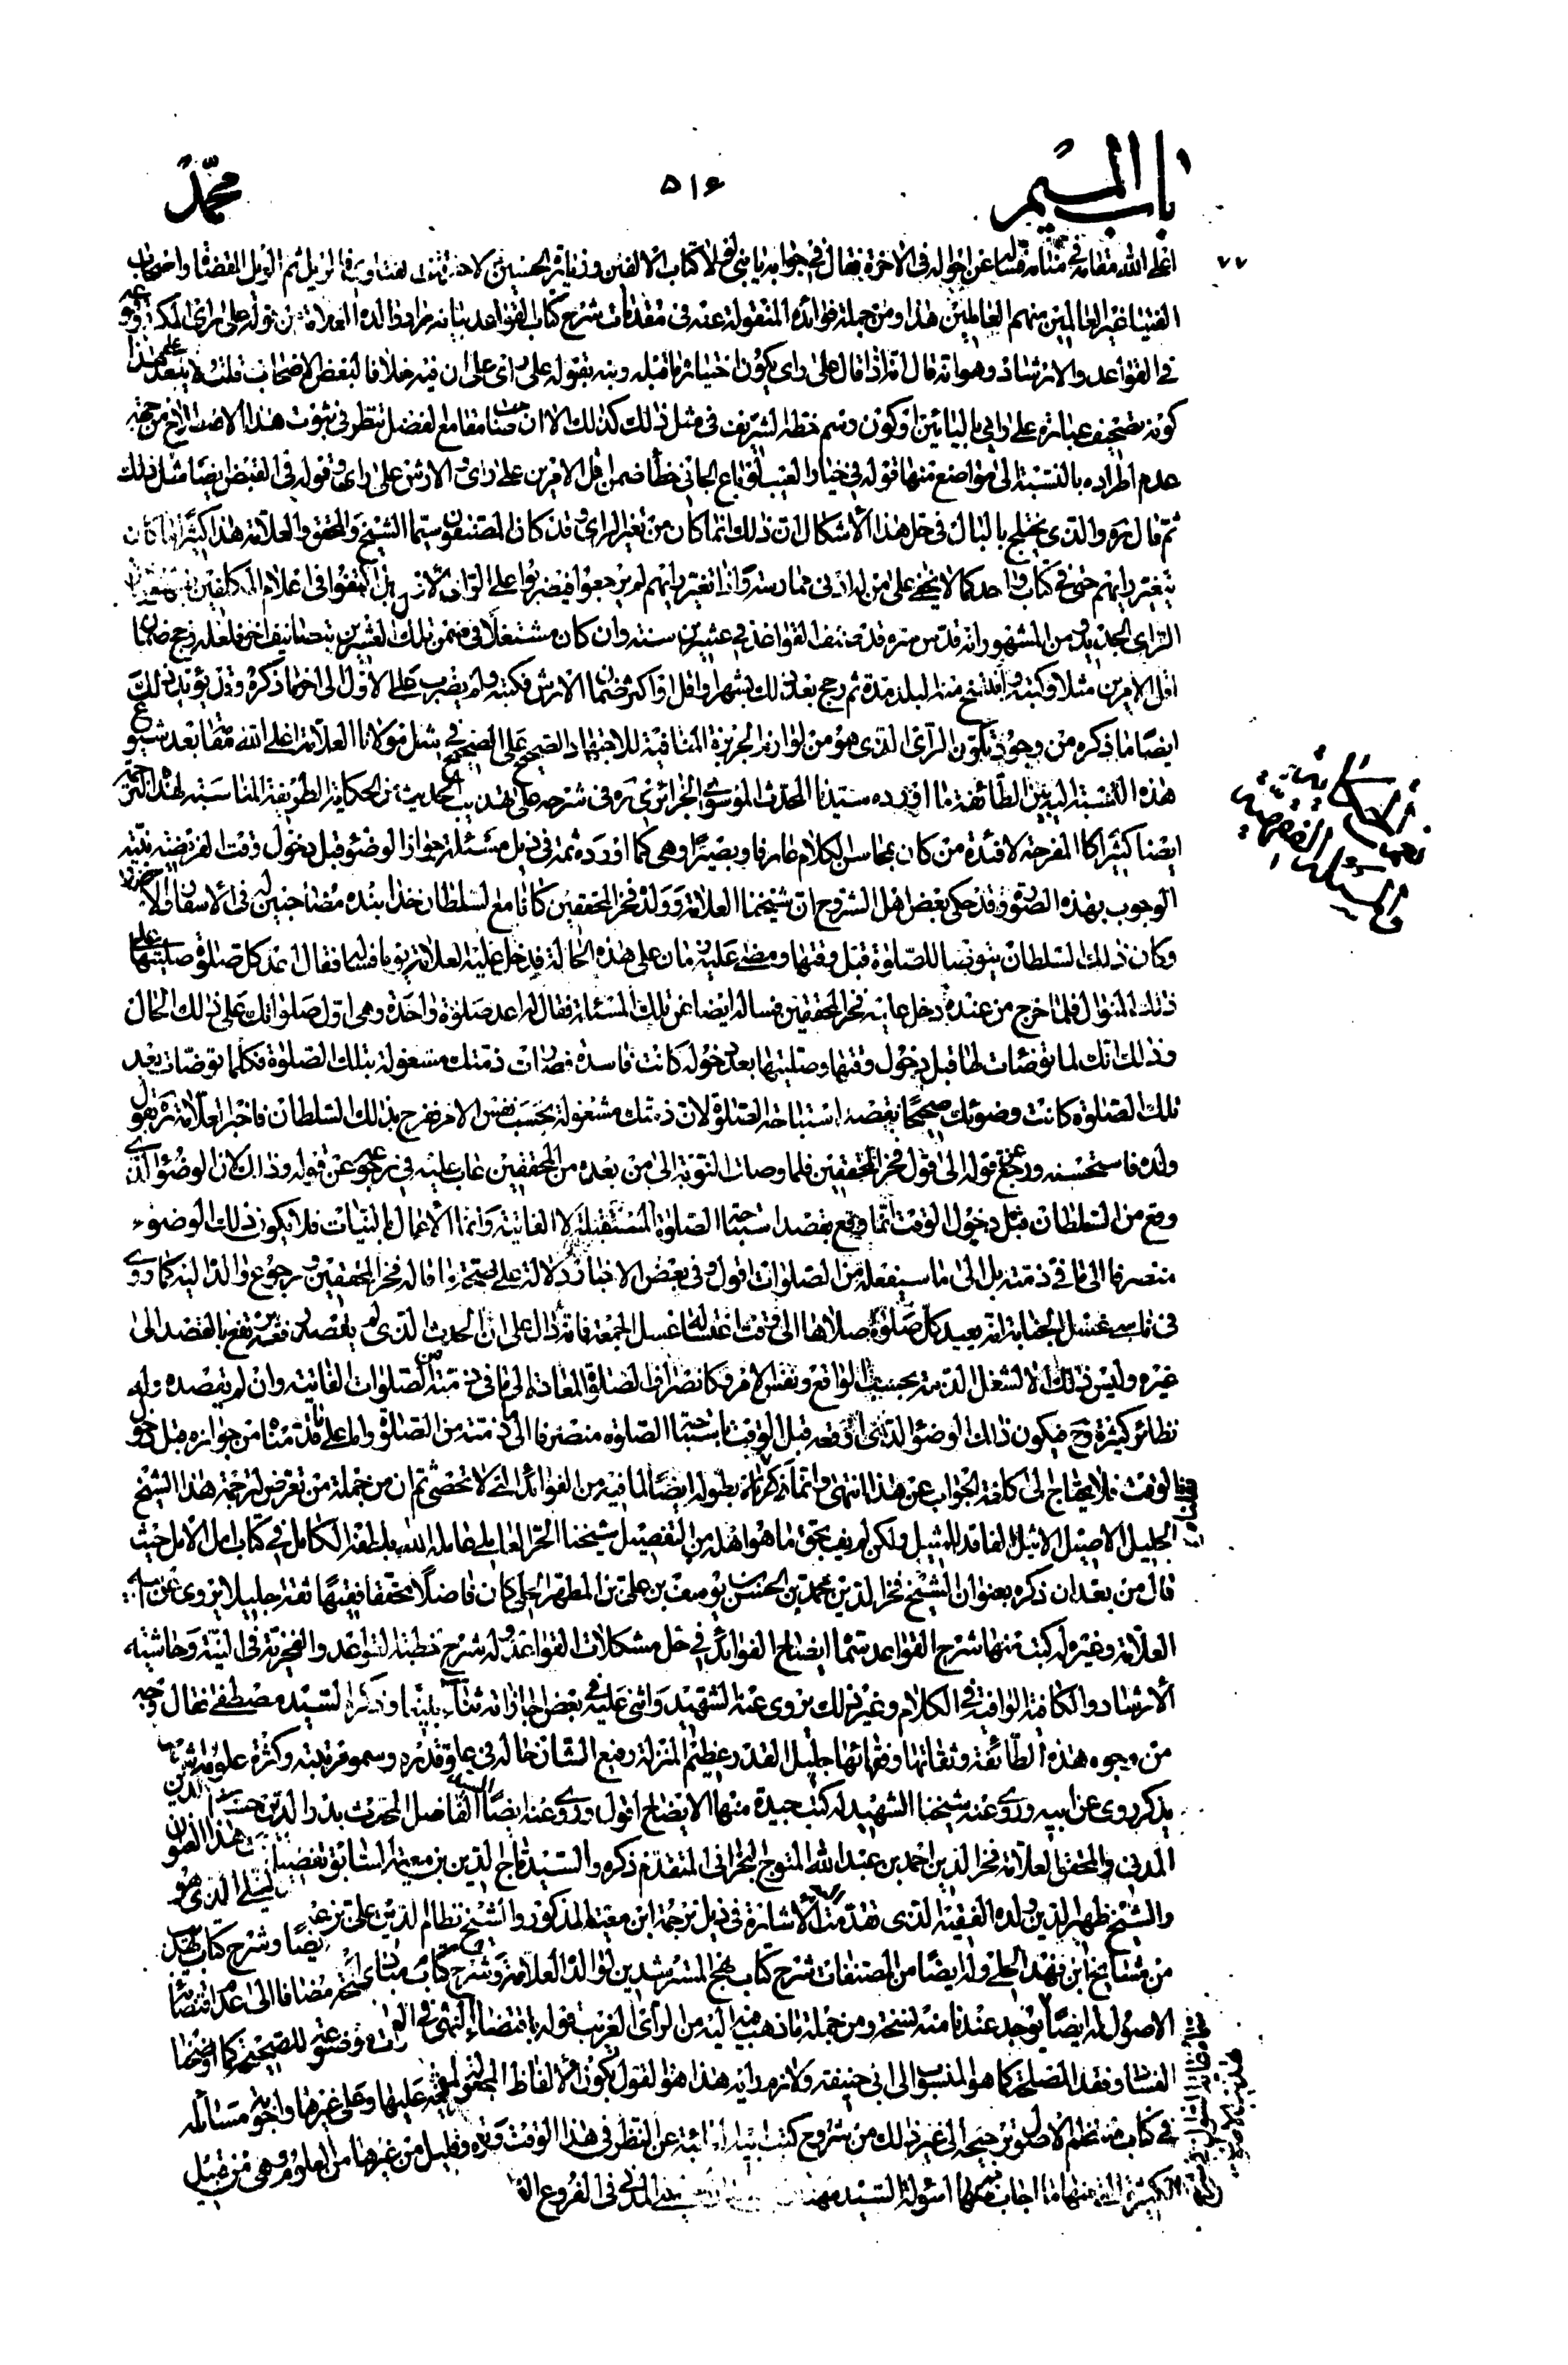 باب الميم
٥١٤
محمّد
٧٧
اعلى الله مقامه في منامه فسأله عن احواله في الاخرة فقال في جوابه يا بنى لولا كتاب الالفين وزيارة الحسين لاهلكتنى الفتاوى فالويل ثم الويل للقضاة واصحاب
الفتيا غير العالمين منهم العاملين هذا ومن جملة فوائده المنقولة عنه في مقدمات شرح كتاب القواعد بيانه مراد والده العلامة من قوله على رأى المكرر وقوعه
في القواعد والارشاد وهو انه قال انه اذا قال على راى يكون اختياره ما قبله وينبه بقوله على رأى على ان فيه خلافا لبعض الاصحاب قلت ولا يبعد على هذا
كونه تصحيف عبارة على رايى باليائين او كون رسم خطه الشريف في مثل ذلك كذلك الا ان هنا مقاما لفضل تنظر في ثبوت هذا الاصطلاح من جهة
عدم اطراده بالنسبة الى مواضع منها قوله في خيار العيب لو باع الجانى خطأ ضمن اقل الامرين على رأى والارش على راى وقوله في القبض ايضا مثل ذلك
ثم قال ره والذى يختلج بالبال في حل هذا الاشكال ان ذلك انما كان من تغير الراى وقد كان المصنفون سيما الشيخ والمحقق والعلامة هذا كثيرا ما كان
يتغير رأيهم حتى في كتاب واحد كما لا يخفى على من له ادنى ممارسة واذا تغير رايهم لم يرجعوا فيضربوا على الراى الاول بل اكتفوا في اعلام المكلفين
الراى الجديد ومن المشهور انه قدس سره قد صنف القواعد في عشرين سنة وان كان مشتغلا في ضمن تلك العشرين بتصانيف اخر فلعله رجح ضمان
اقل الامرين مثلا وكتبه وانتسخ منه البلد مدة ثم رجح بعد ذلك بشهر او اقل او اكثر ضمان الارش فكتبه ولم يضرب على الاول الى اخر ما ذكره وقد يؤيد ذلك
ايضا ما ذكره من وجود تلون الرأى الذى هو من لوازم الجربزة المنافية للاجتهاد الصحيح على الصحيح في مثل مولانا العلامة اعلى الله مقامه بعد شيوع
هذه النسبة اليه بين الطائفة ما اورده سيدنا المحدث الموسوى الجزائرى ره في شرحه على تهذيب الحديث من الحكاية الطريفة المناسبة لهذه الترجمة
ايضا كثيرا كالمفرحة لافئدة من كان بمحاسن الكلام عارفا وبصيرا وهى كما اورده ثمة في ذيل مسئلة جواز الوضوء قبل دخول وقت الفريضة بنية
الوجوب بهذه الصورة وقد حكى بعض اهل الشروح ان شيخنا العلامة وولده فخر المحققين كانا مع السلطان خدا بنده مصاحبين له في الاسفار والحضر
وكان ذلك السلطان يتوضأ للصلوة قبل وقتها ومضى عليه زمان على هذه الحالة فدخل عليه العلامة يوما فسأله فقال اعد كل صلوة صليتها على
ذلك المنوال فلما خرج من عنده دخل عليه فخر المحققين فساله ايضا عن تلك المسئلة فقال له اعد صلوة واحدة وهى اول صلواتك على ذلك الحال
وذلك انك لما توضأت لها قبل دخول وقتها وصليتها بعد دخوله كانت فاسدة فصارت ذمتك مشغولة بتلك الصلوة فكلما توضأت بعد
تلك الصلوة كانت وضوئك صحيحا بقصد استباحة الصلوة لان ذمتك مشغولة بحسب نفس الامر ففرح بذلك السلطان فاخبر العلامة ره بقول
ولده فاستحسنه ورجع عن قوله الى قول فخر المحققين فلما وصلت النوبة الى من بعده من المحققين عاب عليه في رجوعه عن قوله وذلك لان الوضوء الذى
وقع من السلطان قبل دخول الوقت انما وقع بقصد استباحة الصلوة المستقبلة لا الفائتة وانما الاعمال بالنيات فلا يكون ذلك الوضوء
منصرفا الى ما في ذمته بل الى ما سيفعله من الصلوات اقول وفي بعض الاخبار دلالة على صحة ما قاله فخر المحققين ورجوع والده اليه كما روى
في ناسى غسل الجنابة انه يعيد كل صلوة صلاها الى وقت اغتساله غسل الجمعة فانه دال على ان الحدث الذى لم يقصد رفعه يرتفع بالقصد الى
غيره وليس ذلك الا لشغل الذمة بحسب الواقع ونفس الامر وكانصراف الصلوة المعادة الى ما في ذمته من الصلوات الفائتة وان لم يقصده وله
نظائر كثيرة وح فيكون ذلك الوضوء الذى اوقعه قبل الوقت باستباحة الصلوة منصرفا الى ما في ذمته من الصلوة واما على ما قدمناه من جوازه قبل دخول
الوقت فلا يحتاج الى كلفة الجواب عن هذا انتهى وانما ذكرناه بطوله ايضا لما فيه من الفوائد التى لا تحصى ثم ان من جملة من تعرض لترجمة هذا الشيخ
الجليل الاصيل الاثيل الفاقد المثيل ولكن لم يف بحق ما هو اهله من التفصيل شيخنا الحر العاملى عامله الله بلطفه الكامل في كتاب امل الامل حيث
قال من بعد ان ذكره بعنوان الشيخ فخر الدين محمد بن الحسن بن يوسف بن على بن المطهر الحلى كان فاضلا محققا فقيها ثقة جليلا يروى عن ابيه
العلامة وغيره له كتب منها شرح القواعد سماه ايضاح الفوائد في حل مشكلات القواعد وله شرح خطبة القواعد والفخرية في النية وحاشية
الارشاد والكافية الوافية في الكلام وغير ذلك يروى عنه الشهيد واثنى عليه في بعض اجازاته ثناء بليغا وذكره السيد مصطفى فقال وجه
من وجوه هذه الطائفة وثقاتها وفقهائها جليل القدر عظيم المنزلة رفيع الشان حاله في علو قدره وسمو مرتبته وكثرة علومه اشهر من ان
يذكر روى عن ابيه وروى عنه شيخنا الشهيد له كتب جيدة منها الايضاح اقول وروى عنه ايضا السيد الفاضل المحدث بدر الدين حسن
المدنى والمحقق العلامة فخر الدين احمد بن عبد الله المتوج البحرانى المتقدم ذكره والسيد تاج الدين بن معية السابق تفصيله هذا العنوان
والشيخ ظهير الدين ولده الفقيه الذى تقدمت الاشارة في ذيل ترجمة ابن معية المذكور والشيخ نظام الدين على بن النيلى الذى هو
من مشايخ ابن فهد الحلى وله ايضا من المصنفات شرح كتاب نهج المسترشدين لوالده العلامة وشرح كتاب مبادى ايضا وشرح كتاب تهذيب
الاصول له ايضا يوجد عندنا منه نسخة ومن جملة ما ذهب اليه من الرأى الغريب قوله باقتضاء النهى في مضافا الى عدم اقتضائه
الفساد وفقد المصلحة كما هو المنسوب الى ابى حنيفة ولازم رايه هذا هو القول بكون الالفاظ موضوعة للصحيحة كما اوضحنا
في كتاب منتظم الاصول وترجيحه الى غير ذلك من شروح كتب ابيه الغائبة عن النظر في هذا الوقت عليها وعلى غيرها واجوبة مسائله
الكثيرة التى منها ما اجاب به اسولة السيد مهنا المدنى في الفروع وقليل من غيرها من العلوم وهى من قبيل